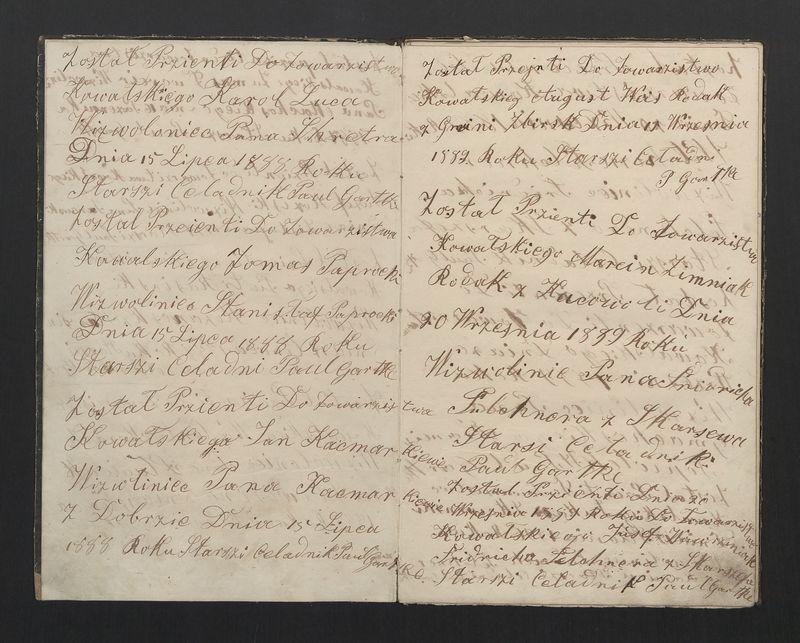 Został Przienti Do Towarzistwa
Kowalskiego Karol Luca
Wizwoloniec Pana Skretra
Dnia 15 Lipca 1888 Roku
Starszi Celadnik Paul Gartke
Został Przeienti Do Towarzistwa
Kowalskiego Tomas Paprocki
Wizwoliniec Stanisłaf Paprocki
Dnia 15 Lipca 1888 Roku
Starszi Celadni Paul Gartke
Został Przienti Do Towarzistwa
Kowalskiega Jan Kacmarkiewic
Wizwliniec Pana Kacmarkiewic
z Dobrzic Dnia 15 Lipca
1888 Roku Starszi Celadnik Paul Gartke
Został Przejnti Do Towarzistwo
Kowalskieg August Wais Rodak
z Graini Zbirsk Dnia 12 Wrzesnia
1889 Roku Starszi Celadni
P Gartke
Został Przienti Do Towarzistwa
Kowalskiego Marcin Zimniak
Rodak z Kucowoli Dnia
20 Wrzesnia 1889 Roku
Wizwolinie Pana
Fulohnera z Skarsewa
Starsi Celadnik
Paul Gartke
Zostal Przienti Dnia 20
Wrzesnia 1889 Roku Do Towarzistwa
Kowalskiego Jusef Wawrziniak
Fridricha Flohnera z Skarszewa
Starszi Celadnik Paul Gartke